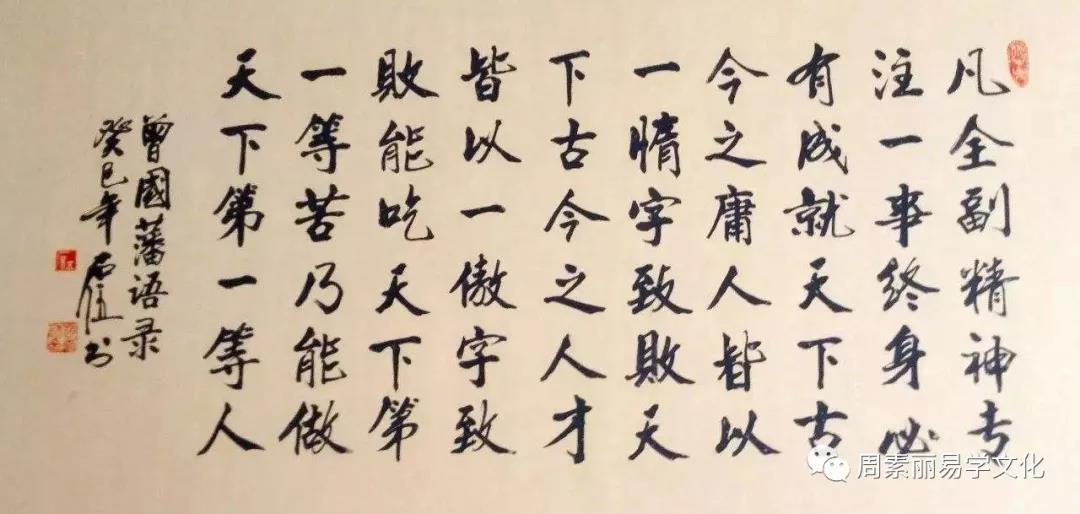 凡全副精神专
注一事终身必
有成就天下古
今之庸人皆以
一惰字致敗天
下古今之人才
皆以一傲字致
敗能吃天下第
一等苦乃能做
天下第一等人
曾國藩语录
癸巳年
书
周素丽易学文化